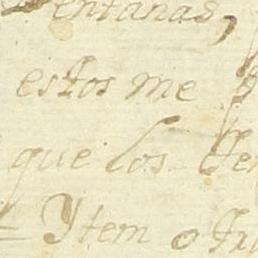 entanas,
estos me
que los
Ytem otra